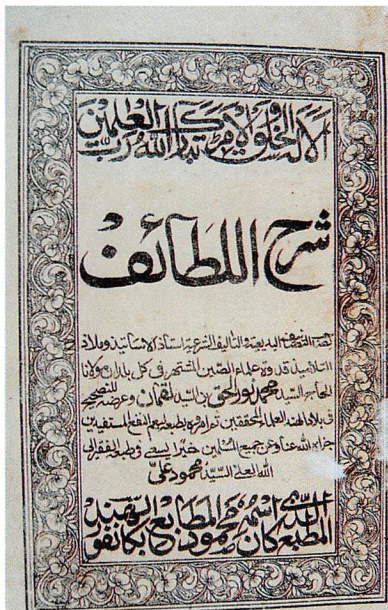 الا له الخلق والامر تبارك الله رب العلمين
شرح اللطائف
البديعة والتاليف الشرعية استاذ الاساتيذ وملاذ
التلاميذ قدوة علماء الصين المشتهر فى كل بلدان مولانا
الحاج السيد محمد نور الحق بن السيد لقمان وعرضه للتصحيح
فى بلاد الهند العلماء المحققين ثم امرهم بطبعه لنفع المستفيدين
جزاه الله عنا وعن جميع المسلمين خيرا يسعى فى طبعه الفقير الى
الله الغنى السيد محمود على
المطبع كان اسمه محمود المطابع بكانفور